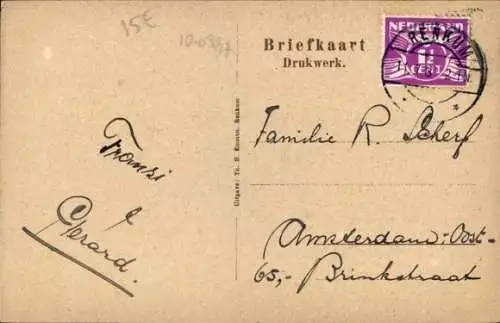 15€
10-0357
Briefkaart
Drukwerk.
NEDERLAND
1½
CENT
RENKUM
Familie R. Scherf
Amsterdam-Oost-
65,- Brinkstraat
Fromsi
&
Gerard.
Uitgave: Th. H. Renkum